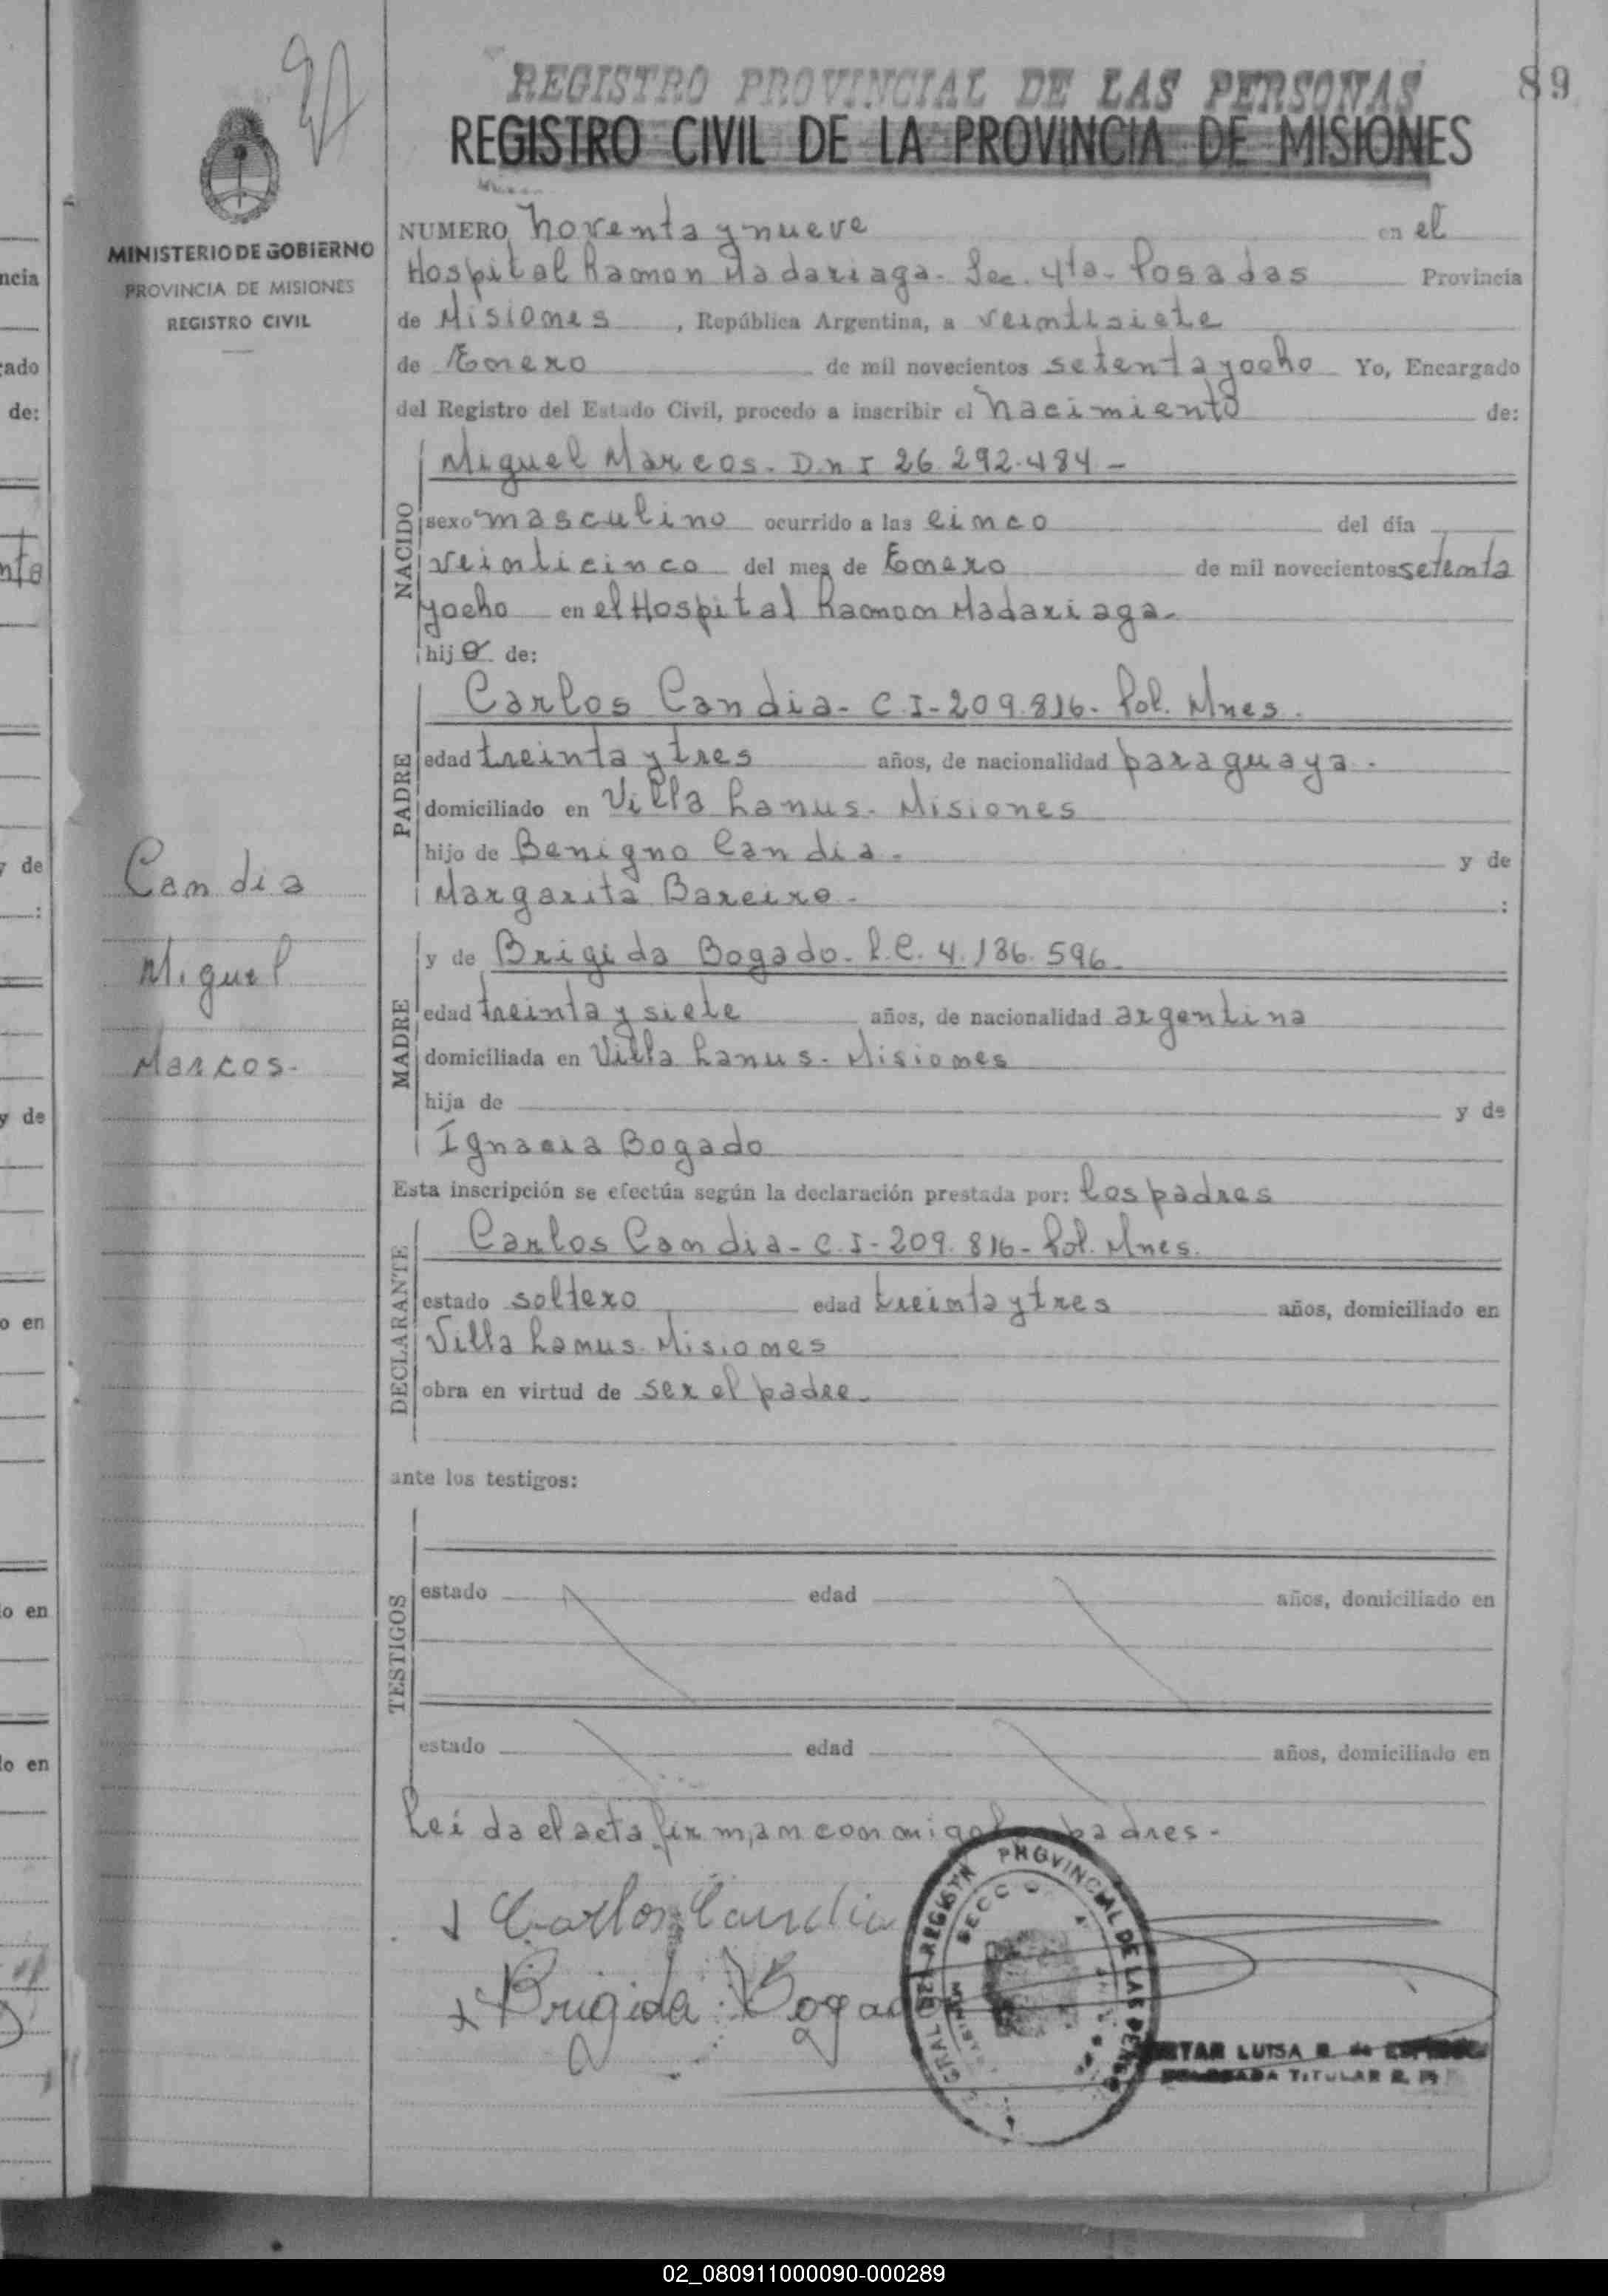 REGISTRO PROVINCIAL DE LAS PERSONAS
89
REGISTRO CIVIL DE LA PROVINCIA DE MISIONES
MINISTERIO DE GOBIERNO
PROVINCIA DE MISIONES
REGISTRO CIVIL
NUMERO Noventa y nueve en el
Hospital Ramon Madariaga - Sec. 4ta - Posadas Provincia
de Misiones, República Argentina, a veintisiete
de Enero de mil novecientos setenta y ocho Yo, Encargado
del Registro del Estado Civil, procedo a inscribir el Nacimiento de:
NACIDO
Miguel Marcos. D.N I 26.292.484 -
sexo masculino ocurrido a las cinco del día
veinticinco del mes de Enero de mil novecientos setenta
y ocho en el Hospital Ramon Madariaga.
hijo de:
PADRE
Carlos Candia - C.I - 209.816 - Pol. Mnes.
edad treinta y tres años, de nacionalidad paraguaya.
domiciliado en Villa Lanus - Misiones
hijo de Benigno Candia. y de
Margarita Bareiro. :
Candia
Miguel
Marcos.
MADRE
y de Brigida Bogado. L.C. 4.136.596.
edad treinta y siete años, de nacionalidad argentina
domiciliada en Villa Lanus - Misiones
hija de y de
Ignacia Bogado
Esta inscripción se efectúa según la declaración prestada por: los padres
DECLARANTE
Carlos Candia - C.I - 209.816 - Pol. Mnes.
estado soltero edad treinta y tres años, domiciliado en
Villa Lanus. Misiones
obra en virtud de ser el padre.
ante los testigos:
TESTIGOS
estado edad años, domiciliado en
estado edad años, domiciliado en
Leída el acta firman conmigo padres -
Carlos Candia
Brigida Bogado
PROVINCIAL DE LAS
SECC
LUISA
TITULAR
ncia
cado
de:
y de
:
y de
o en
lo en
lo en
02_080911000090-000289